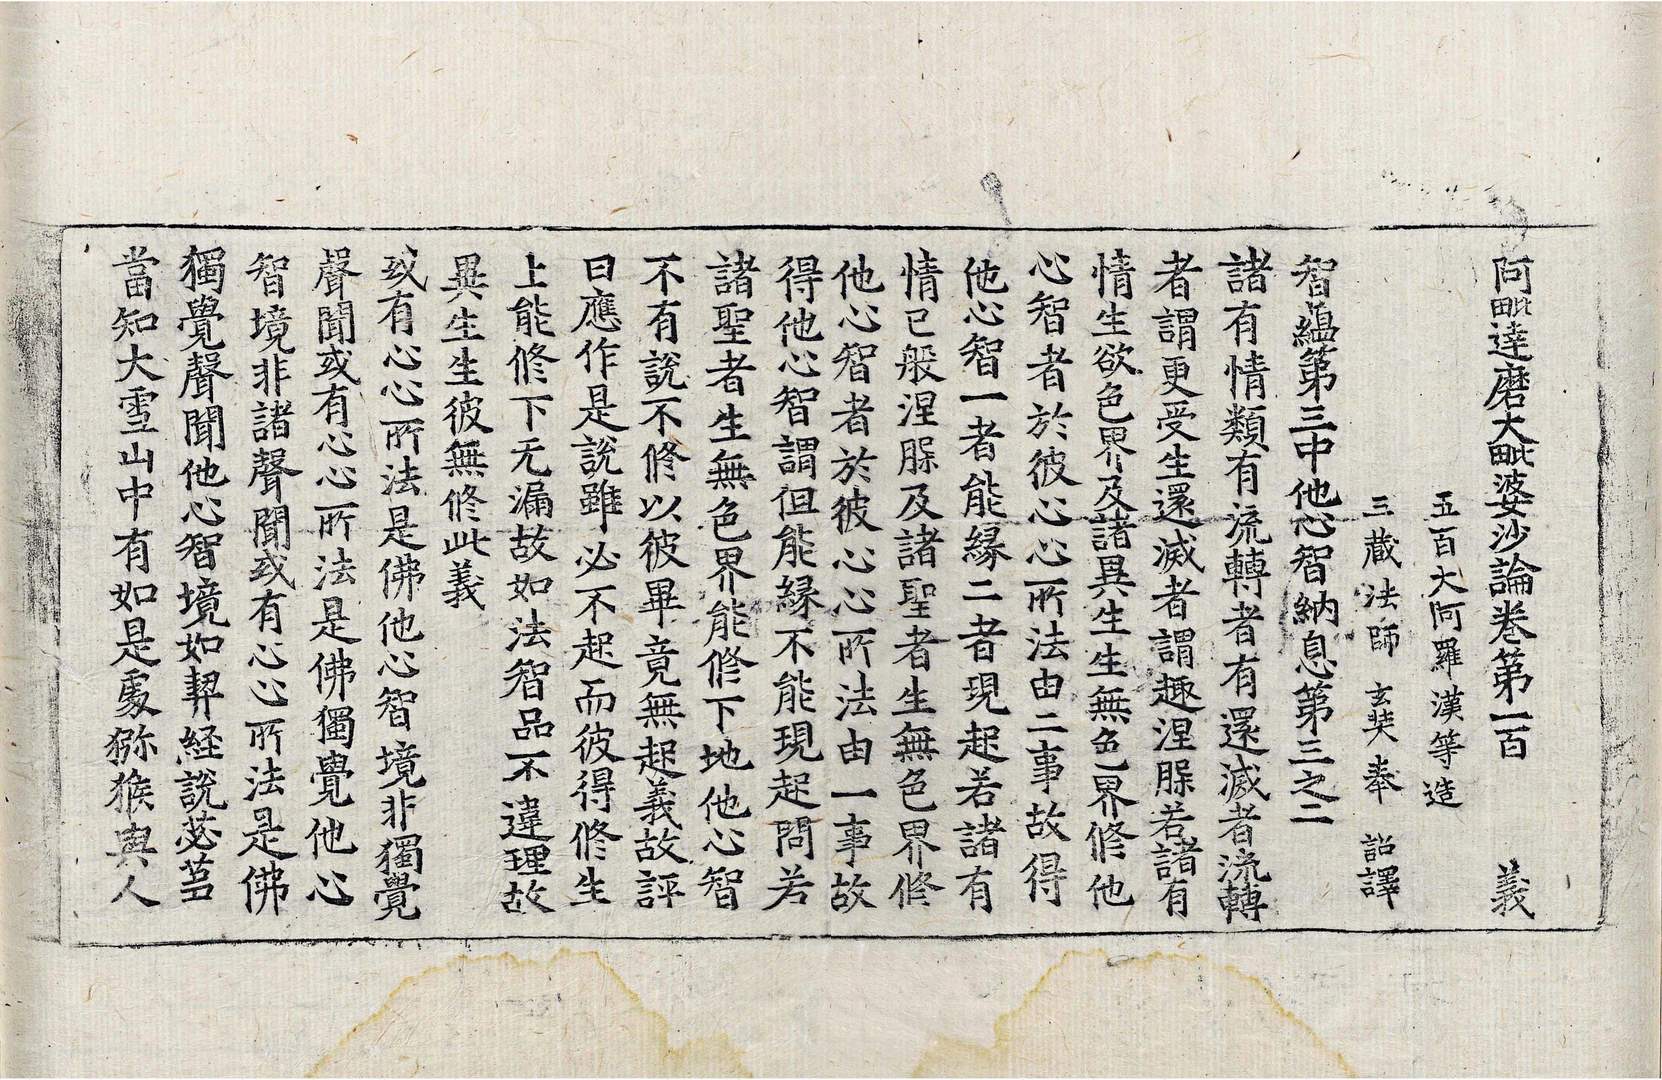 阿毗達磨大毗婆沙論卷第一百　義
五百大阿羅漢等造
三藏法師　玄奘奉　詔譯
智蘊第三中他心智納息第三之二
諸有情類有流轉者有還滅者流轉
者謂更受生還滅者謂趣涅槃若諸有
情生欲色界及諸異生生無色界修他
心智者於彼心心所法由二事故得
他心智一者能緣二者現起若諸有
情已般涅槃及諸聖者生無色界修
他心智者於彼心心所法由一事故
得他心智謂但能緣不能現起問若
諸聖者生無色界能修下地他心智
不有說不修以彼畢竟無起義故評
曰應作是說雖必不起而彼得修生
上能修下无漏故如法智品不違理故
異生生彼無修此義
或有心心所法是佛他心智境非獨覺
聲聞或有心心所法是佛獨覺他心
智境非諸聲聞或有心心所法是佛
獨覺聲聞他心智境如契經說苾芻
當知大雪山中有如是處猕猴與人